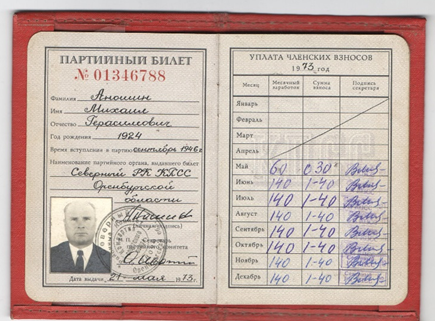 ПАРТИЙНЫЙ БИЛЕТ
№ 01346788
Фамилия Аношин
Имя Михаил
Отчество Герасимович
Год рождения 1924
Время вступления в партию сентябрь 1946 г.
Наименование партийного органа, выдавшего билет
Северный РК КПСС
Оренбургской
области
Дата выдачи 21 мая 1973 г.
УПЛАТА ЧЛЕНСКИХ ВЗНОСОВ
1973 год
Месяц Месячный заработок Сумма взноса Подпись секретаря
Январь
Февраль
Март
Апрель
Май 60 0-30
Июнь 140 1-40
Июль 140 1-40
Август 140 1-40
Сентябрь 140 1-40
Октябрь 140 1-40
Ноябрь 140 1-40
Декабрь 140 1-40